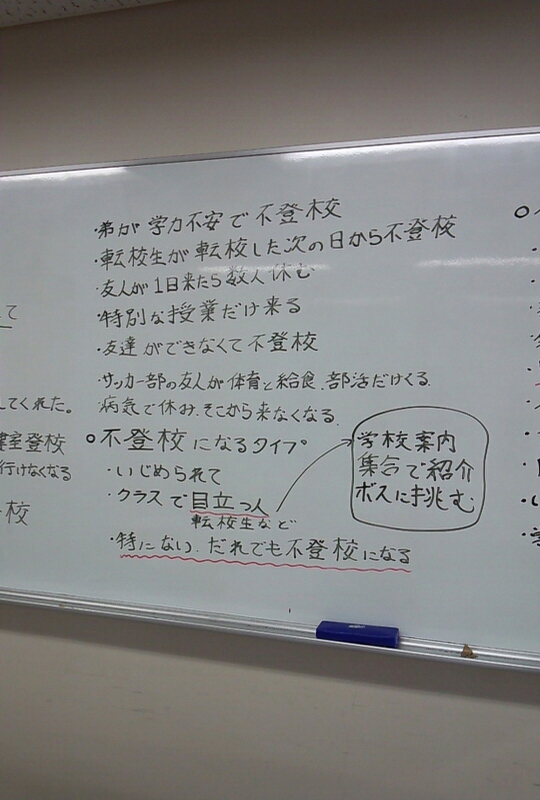 ・弟が学力不安で不登校
・転校生が転校した次の日から不登校
・友人が1日来たら数人休む
・特別な授業だけ来る
・友達ができなくて不登校
・サッカー部の友人が体育と給食、部活だけくる
病気で休み、そこから来なくなる
○不登校になるタイプ
・いじめられて
・クラスで目立つ人
転校生など
・特にない、だれでも不登校になる
学校案内
集合で紹介
ボスに挑む
て
してくれた。
室登校
行けなくなる
校